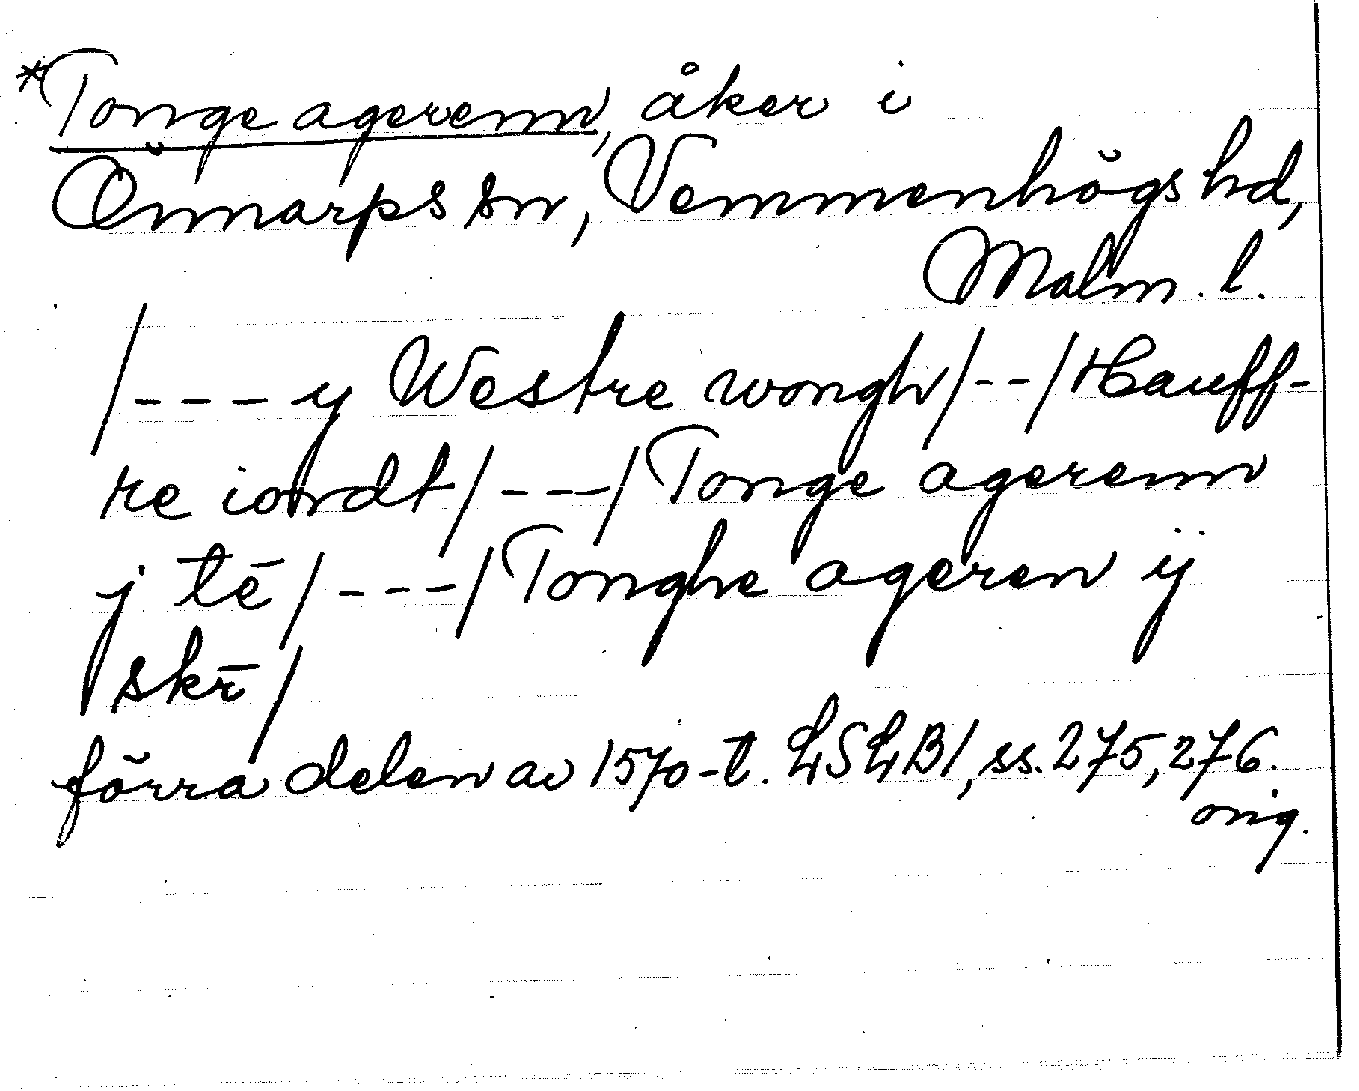 *Tonge agerenn, åker i
Önnarps sn, Vemmenhögs hd,
Malm. l.
/---y Westre wongh/--/Hauff-
re iordt/---/Tonge agerenn
j tē/---/Tonghe ageren ij
skr̄/
förra delen av 1570-t. LSLB1, ss. 275, 276.
orig.